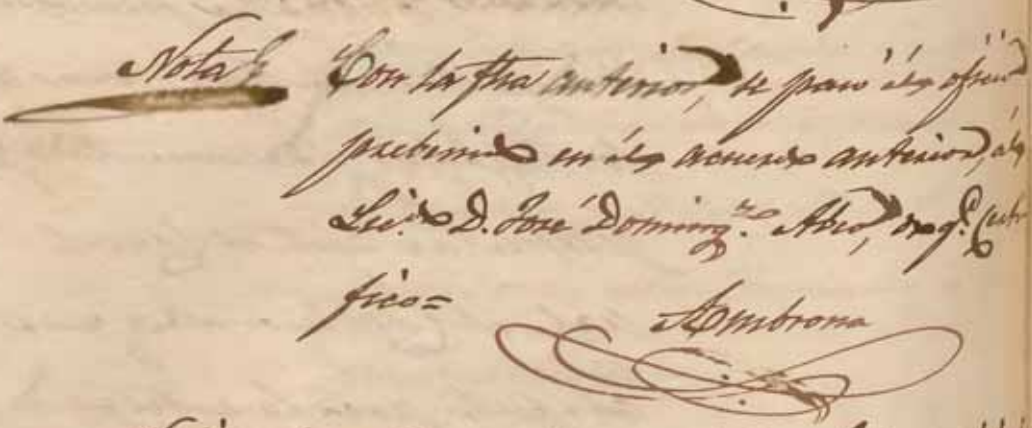 Nota
Con la fha anterior, se pasó el oficio
prebenido en el acuerdo anterior, al
Lic.do D. José Doming.z Abo, de q.e Certi
fico=
Ambrona